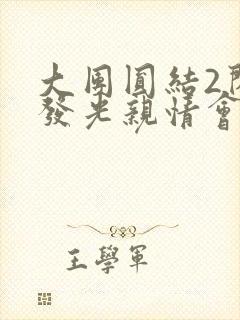 大團圓結2
發光親情會
王學軍